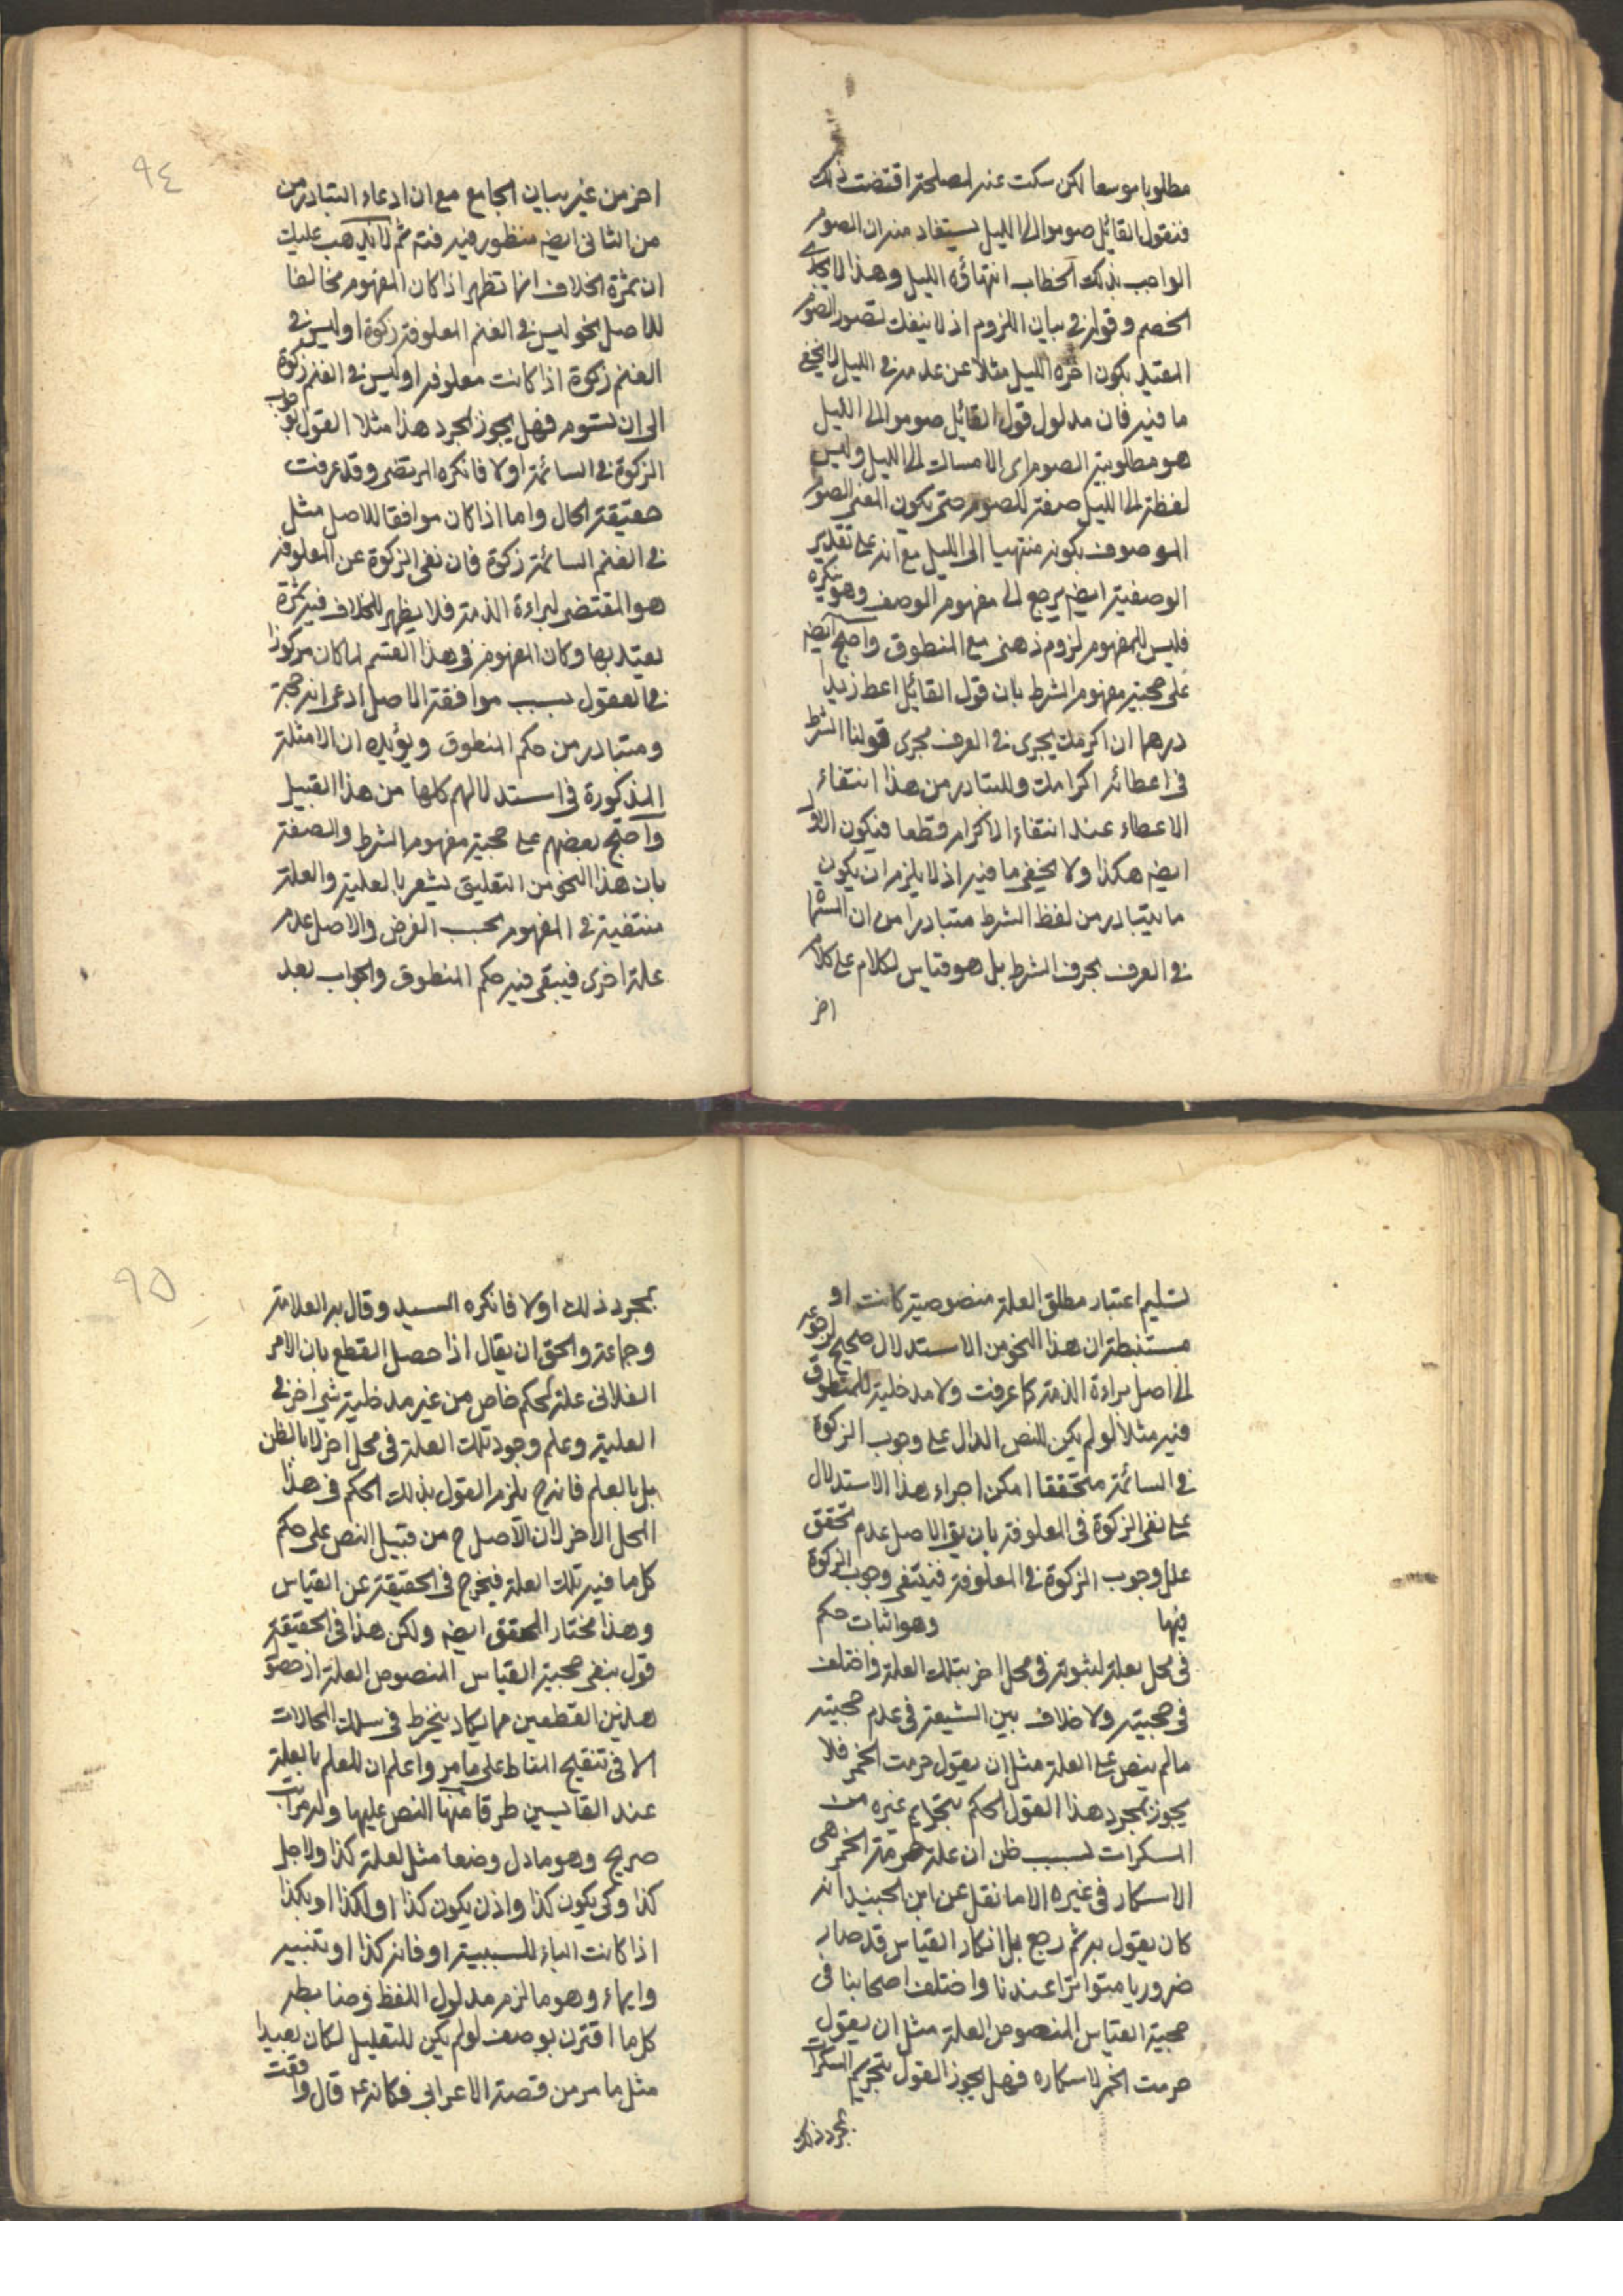 مطلوبا موسعا لكن سكت عنه لمصلحة اقتضت ذلك
فنقول القائل صوموا الى الليل يستفاد منه ان الصوم
الواجب بذلك الخطاب انتهاؤه الليل وهذا لا يجدى
الخصم وقوله في بيان اللزوم اذ لا ينفك تصور الصوم
المقيد بكون اخره الليل مثلا عن عدمه في الليل لا يخفى
ما فيه فان مدلول قول القائل صوموا الى الليل
هو مطلوبية الصوم اى الامساك الى الليل وليس
لفظة الى الليل صفة للصوم حتى يكون المعنى الصوم
الموصوف بكونه منتهيا الى الليل مع انه على تقدير
الوصفية ايضه يرجع الى مفهوم الوصف وهو ينكره
فليس للمفهوم لزوم ذهنى مع المنطوق واحتج ايضه
على حجية مفهوم الشرط بان قول القائل اعط زيدا
درهما ان اكرمك يجرى في العرف مجرى قولنا الشرط
في اعطائه اكرامك والمتبادر من هذا انتفاء
الاعطاء عند انتفاء الاكرام قطعا فيكون الاول
ايضه هكذا ولا يخفى ما فيه اذ لا يلزم ان يكون
ما يتبادر من لفظ الشرط متبادرا من ان
في العرف بحرف الشرط بل هو قياس لكلام على كلام
اخر
٩٤
اخر من غير بيان الجامع مع ان ادعاء التبادر من
من الثانى ايضه منظور فيه فته ثم لا يذهب عليك
ان ثمرة الخلاف انما تظهر اذا كان المفهوم مخالفا
للاصل نحو ليس في الغنم المعلوفة زكوة او ليس في
الغنم زكوة اذا كانت معلوفه او ليس في الغنم زكوة
الى ان تسوم فهل يجوز بمجرد هذا مثلا القول بوجوب
الزكوة في السائمة اولا فانكره المرتضى وقد عرفت
حقيقة الحال واما اذا كان موافقا للاصل مثل
في الغنم السائمة زكوة فان نفى الزكوة عن المعلوفه
هو المقتضى لبراءة الذمة فلا يظهر للخلاف فيه ثمرة
يعتد بها وكان المفهوم في هذا القسم لما كان مركوزا
في العقول بسبب موافقة الاصل ادعى انه حجة
ومتبادر من حكم المنطوق ويؤيده ان الامثلة
المذكورة في استدلالهم كلها من هذا القبيل
واحتج بعضهم على حجية مفهوم الشرط والصفة
بان هذا النحو من التعليق يشعر بالعلية والعلة
منتفية في المفهوم بحسب الفرض والاصل عدم
علة اخرى فيبقى فيه حكم المنطوق والجواب بعد
تسليم اعتبار مطلق العلة منصوصية كانت او
مستنبطة ان هذا النحو من الاستدلال صحيح لرجوعه
الى اصل براءة الذمة كما عرفت ولا مدخلية للمنطوق
فيه مثلا لو لم يكن للنص الدال على وجوب الزكوة
في السائمة متحققا امكن اجراء هذا الاستدلال
على نفى الزكوة في المعلوفة بان يق الاصل عدم تحقق
علل وجوب الزكوة في المعلوفة فينتفى وجوب الزكوة
فيها وهو اثبات حكم
في محل بعلة لثبوته في محل اخر بتلك العلة واختلف
في حجيته ولا خلاف بين الشيعة في عدم حجية
ما لم ينص على العلة مثل ان يقول حرمت الخمر فلا
يجوز بمجرد هذا القول الحكم بتحريم غيره من
المسكرات بسبب ظن ان علة حرمة الخمر هى
الاسكار في غيره الا ما نقل عن ابن الجنيد انه
كان يقول به ثم رجع بل انكار القياس قد صار
ضروريا متواترا عندنا واختلف اصحابنا في
حجية القياس المنصوص العلة مثل ان يقول
حرمت الخمر لاسكاره فهل يجوز القول بتحريم المسكرات
بمجرد ذلك
٩٥
بمجرد ذلك اولا فانكره السيد وقال به العلامة
وجماعة والحق ان يقال اذا حصل القطع بان الامر
الفلانى علة لحكم خاص من غير مدخلية شئ اخر في
العلية وعلم وجود تلك العلة في محل اخر لا بالظن
بل بالعلم فانه ح يلزم القول بذلك الحكم في هذا
المحل الاخر لان الاصل ح من قبيل النص على حكم
كل ما فيه تلك العلة فيخرج في الحقيقة عن القياس
وهذا مختار المحقق ايضه ولكن هذا في الحقيقة
قول بنفى حجية القياس المنصوص العلة اذ حصول
هذين القطعين مما يكاد ينخرط في سلك المحالات
الا في تنقيح المناط على ما مر واعلم ان للعلم بالعلة
عند القايسين طرقا منها النص عليها وله مراتب
صريح وهو ما دل وضعا مثل لعلة كذا ولاجل
كذا وكى يكون كذا واذن يكون كذا او لكذا او بكذا
اذا كانت الباء للسببية او فانه كذا او تنبيه
وايماء وهو ما لزم مدلول اللفظ وضابطه
كل ما اقترن بوصف لو لم يكن للتعليل لكان بعيدا
مثل ما مر من قصة الاعرابى فكانه ع قال واقعت